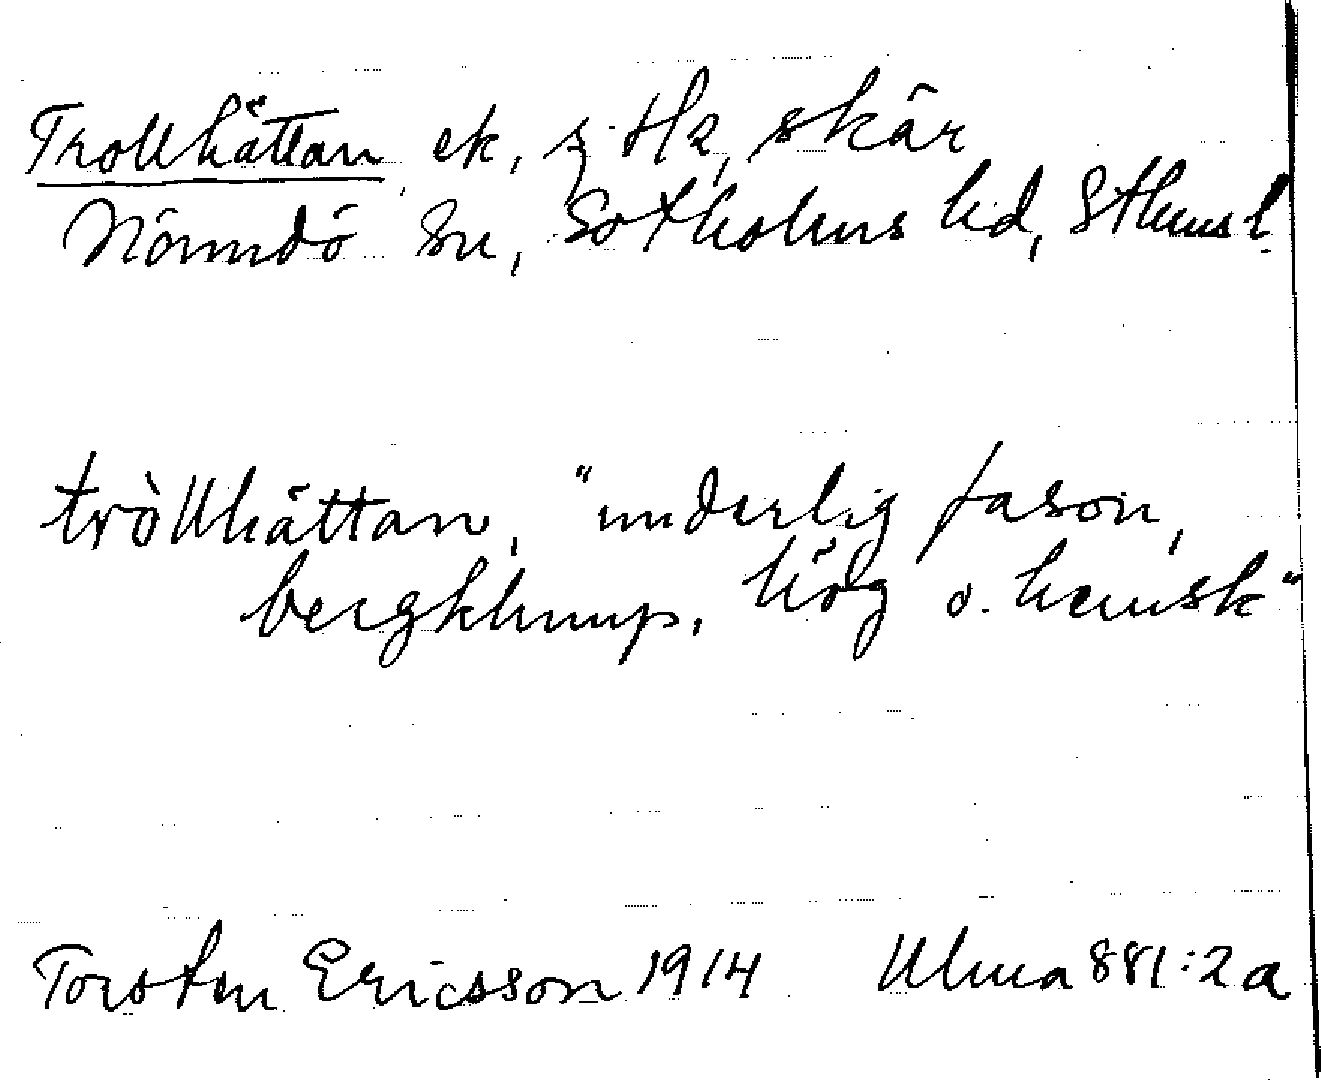 Trollhättan ek, z Hz, skär
Nämdö sn, Sotholms hd, Sthms l.
tròllhättan, "underlig fason,
bergklump, hög o. hemsk"
Torsten Ericsson 1914 Ulma 881:2a